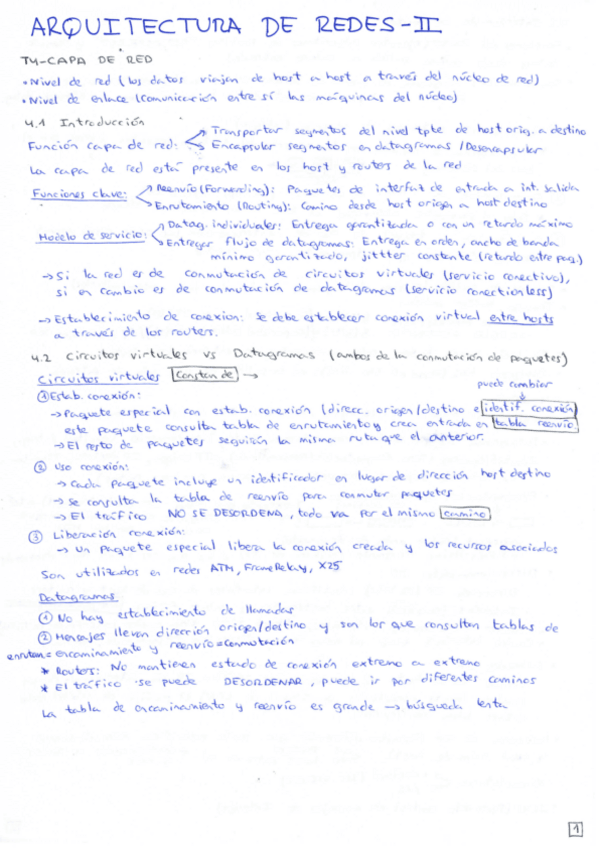 ARQUITECTURA DE REDES-II
T4-CAPA DE RED
• Nivel de red (los datos viajan de host a host a través del núcleo de red)
• Nivel de enlace (Comunicación entre sí las máquinas del núcleo)
4.1 Introducción
Transportar segmentos del nivel tpte de host orig. a destino
Función capa de red: Encapsular segmentos en datagramas / Desencapsular
La capa de red está presente en los host y routers de la red
Funciones clave: Reenvío (Forwarding): Paquetes de interfaz de entrada a int. salida
Enrutamiento (Routing): Camino desde host origen a host destino
Modelo de servicio: Datag. individuales: Entrega garantizada o con un retardo máximo
Entregar flujo de datagramas: Entrega en orden, ancho de banda
mínimo garantizado, jittter constante (retardo entre paq.)
→ Si la red es de conmutación de circuitos virtuales (servicio conectivo),
si en cambio es de conmutación de datagramas (servicio conectionless)
→ Establecimiento de conexion: se debe establecer conexión virtual entre hosts
a través de los routers.
4.2 Circuitos virtuales vs Datagramas (ambos de la conmutación de paquetes)
Circuitos virtuales Constan de →
puede cambiar
① Estab. conexión:
→ Paquete especial con estab. conexión (direcc. origen/destino e identif. conexión)
este paquete consulta tabla de enrutamiento y crea entrada en tabla reenvío
→ El resto de paquetes seguirán la misma ruta que el anterior.
② Uso conexión:
→ Cada paquete incluye un identificador en lugar de dirección host destino
→ Se consulta la tabla de reenvío para conmutar paquetes
→ El tráfico NO SE DESORDENA, todo va por el mismo camino
③ Liberación conexión:
→ Un paquete especial libera la conexión creada y los recursos asociados
Son utilizados en redes ATM, FrameRelay, X25
Datagramas
① No hay establecimiento de llamadas
② Mensajes llevan dirección origen/destino y son los que consultan tablas de
enrutam = encaminamiento y reenvío = conmutación
* Routers: No mantienen estado de conexión extremo a extremo
* El tráfico se puede DESORDENAR, puede ir por diferentes caminos
La tabla de encaminamiento y reenvío es grande → búsqueda lenta
1